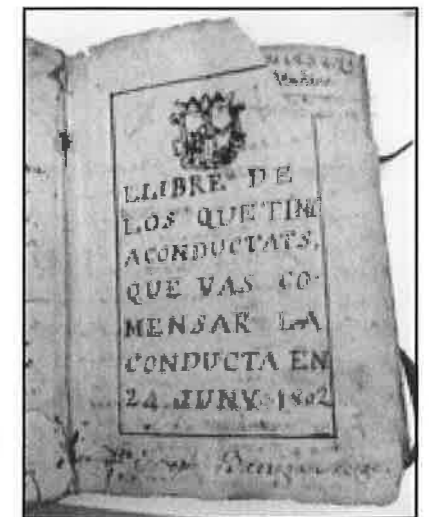 LLIBRE DE
LOS QUE TINC
ACONDUCTATS,
QUE VAS CO-
MENSAR LA
CONDUCTA EN
24 JUNY 1802